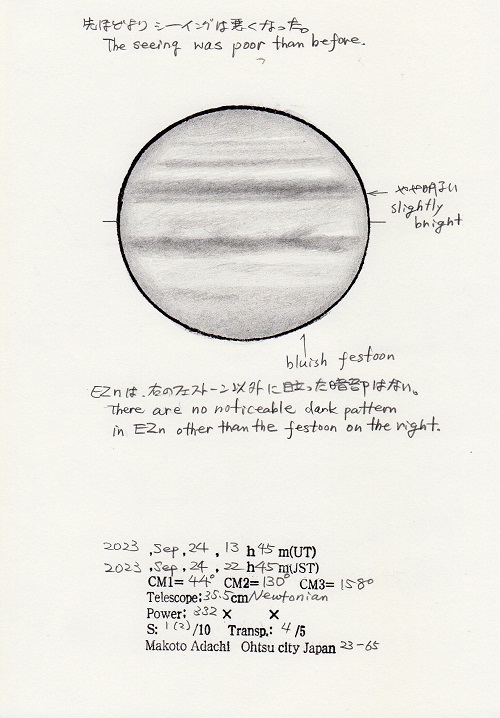 先ほどよりシーイングは悪くなった。
The seeing was poor than before.
やや明るい
slightly
bright
bluish festoon
EZnは、右のフェストーン以外に目立った暗部はない。
There are no noticeable dark pattern
in EZn other than the festoon on the right.
2023 , Sep , 24 , 13 h 45 m(UT)
2023 , Sep , 24 , 22 h 45 m(JST)
CM1= 44° CM2= 130° CM3= 158°
Telescope: 35.5cm/Newtonian
Power: 332 × ×
S: 1(2)/10 Transp.: 4/5
Makoto Adachi Ohtsu city Japan 23-65